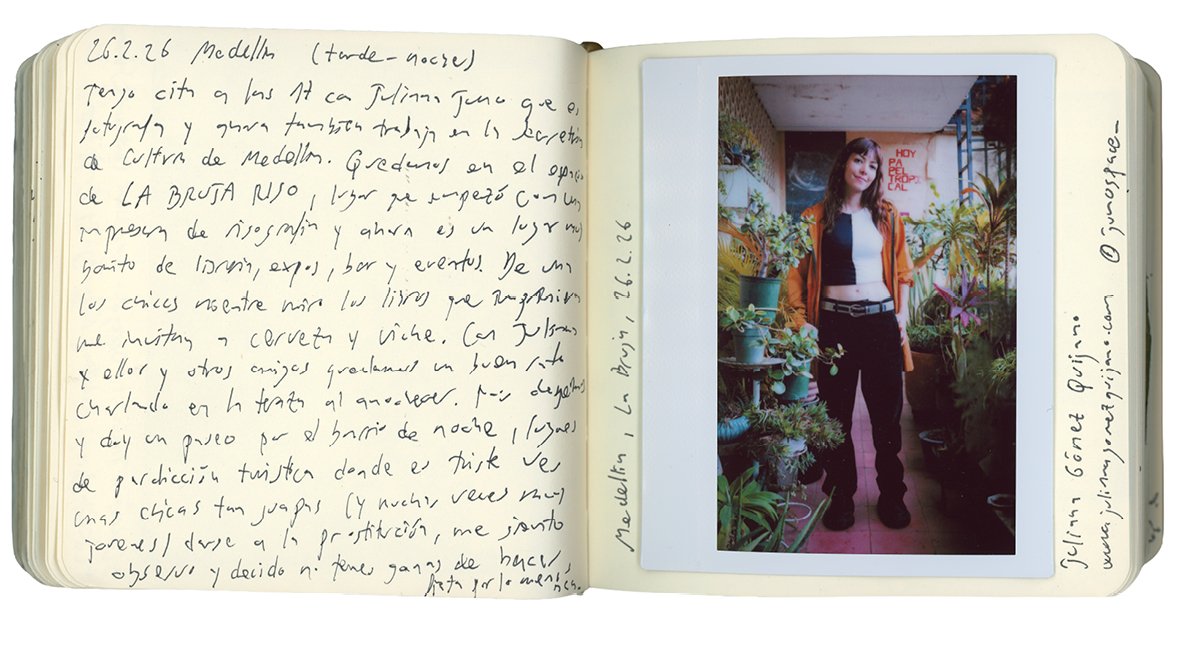 26.2.26 Medellin (tarde-noche)
Tengo cita a las 17 con Juliana Jumo que es
fotografa y ahora también trabaja en la Secretaria
de Cultura de Medellin. Quedamos en el espacio
de LA BRUJA RISO, lugar que empezó con una
impresora de risografia y ahora es un lugar muy
bonito de libreria, expos, bar y eventos.
las chicas mientre miro los libros que
me invitan a cerveza y viche. Con Juliana
y ellos y otros amigos quedamos un buen rato
charlando en la terraza al anochecer.
y doy un paseo por el barrio de noche, lugares
de perdicción turistica donde es triste ver
unas chicas tan guapas (y muchas veces muy
jovenes) darse a la prostitución, me siento
observo y decido no tener ganas de hacer
por lo menos
HOY
PA
PEL
TROPI
CAL
Medellin, La Bruja, 26.2.26
Juliana Gómez Quijano
www.julianagomezquijano.com @jumospace_